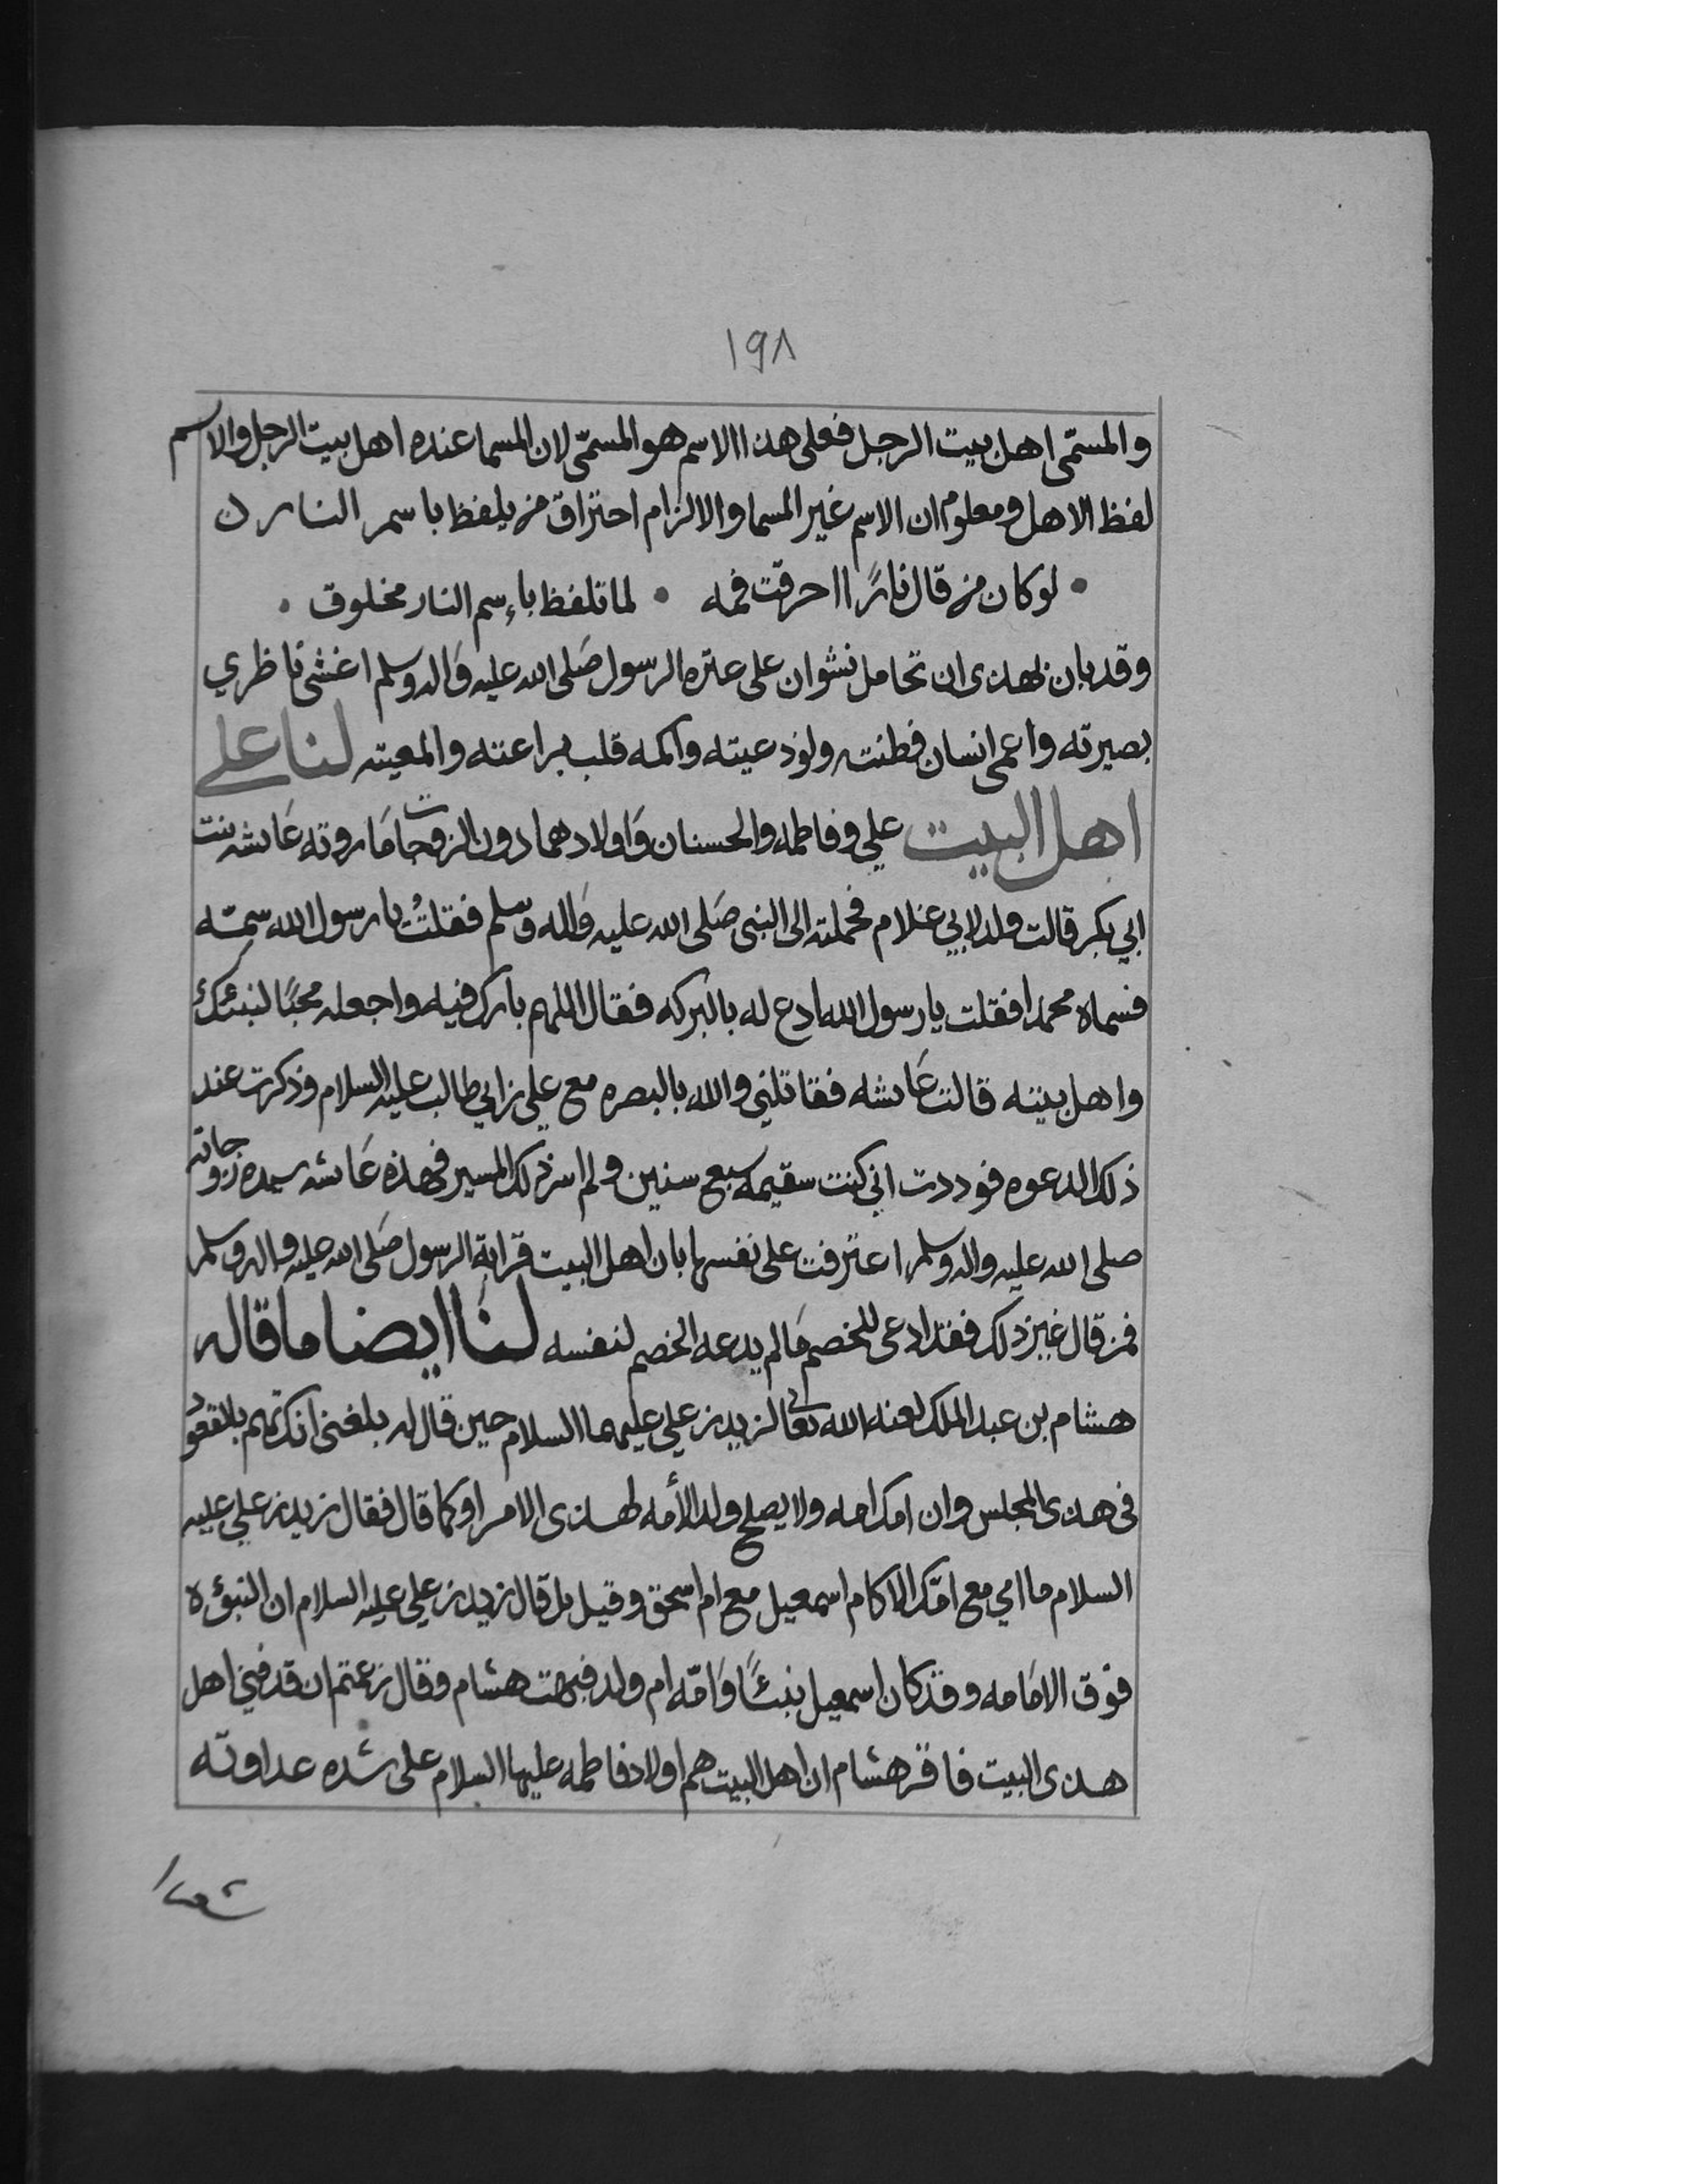 ١٩٨
والمسمّى اهل بيت الرجل فعلى هذا الاسم هو المسمّى لان المسما عنده اهل بيت الرجل والاسم
لفظ الاهل ومعلوم ان الاسم غير المسما والا لزام احتراق من يلفظ باسم النار ن
• لو كان من قال نارًا احرقت فمه • لما تلفظ بإسم النار مخلوق •
وقد بان بهذى ان تحامل نشوان على عتره الرسول صَلى الله عليه وَاله وسلم اغشى ناظري
بصيرته واعمى انسان فطنته ولوذعيته واكمه قلب براعته والمعيته لنا على
اهل البيت علي وفاطمه والحسنان وَاولادهما دون الزوجات مَا روته عَايشه بنت
ابي بكر قالت ولد لابي غلام فحملته الى النبى صَلى الله عليه وَاله وسلم فقلتُ يا رسول الله سمّه
فسماه محمدا فقلت يا رسول الله ادع له بالبركه فقال اللهم بارك فيه واجعله محبًا لنبئك
واهل بيته قالت عَايشه فقاتلني والله بالبصره مع علي بن ابي طالب عليه السلام وذكرت عند
ذلك الدعوه فوددت اني كنت سقيمه سبع سنين ولم اسر ذلك المسير فهذه عَايشه سيده زوجاته
صلى الله عليه واله وسلم اعترفت على نفسها بان اهل البيت قرابة الرسول صَلى الله عليه واله وسلم
فمن قال غير ذلك فقد ادعى للخصم مَا لم يدعه الخصم لنفسه لنَا ايضا ما قاله
هشام بن عبد الملك لعنه الله تعالى لزيد بن علي عليهما السلام حين قال له بلغني انك تهم بالقعود
في هذى المجلس وان امك امه ولا يصلح ولد الأمه لهذى الامر او كما قال فقال زيد بن علي عليه
السلام ما امي مع امّك الا كام اسمعيل مع ام اسحق وقيل بل قال زيد بن علي عليه السلام ان النبؤه
فوق الامَامه وقد كان اسمعيل نبئًا وَامّه ام ولد فبهت هشام وقال زعمتم ان قد فني اهل
هذى البيت فاقر هشام ان اهل البيت هم اولاد فاطمه عليها السلام على شده عداوته